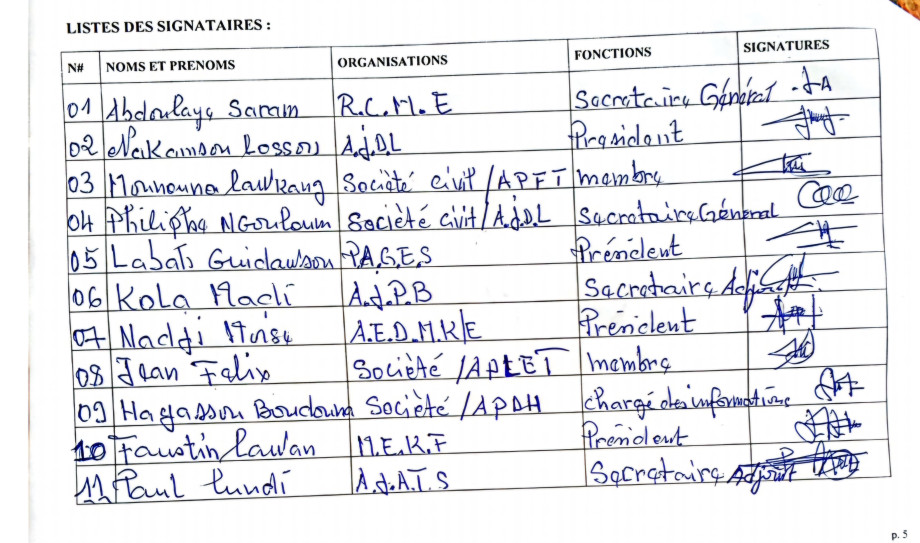 LISTES DES SIGNATAIRES :
N# NOMS ET PRENOMS ORGANISATIONS FONCTIONS SIGNATURES
01 Abdoulaye Saram R.C.M.E Secretaire Général
02 Lossou A.J.D.L President
03 Mounouna Laukang Société civil/APFT membre
04 Philiphe NGouloum Société civil/A.J.D.L Secretaire Général
05 Labats Guidausson P.A.G.E.S Président
06 Kola Madi A.J.P.B Secretaire Adjoint
07 Nadji Moise A.E.D.M.K/E Président
08 Jean Felix Société/APLET membre
09 Hagasson Boudouna Société/APDH chargé des informations
10 Faustin Laulan M.E.K.F Président
11 Paul Pundi A.J.A.T.S Secretaire Adjoint
p. 5